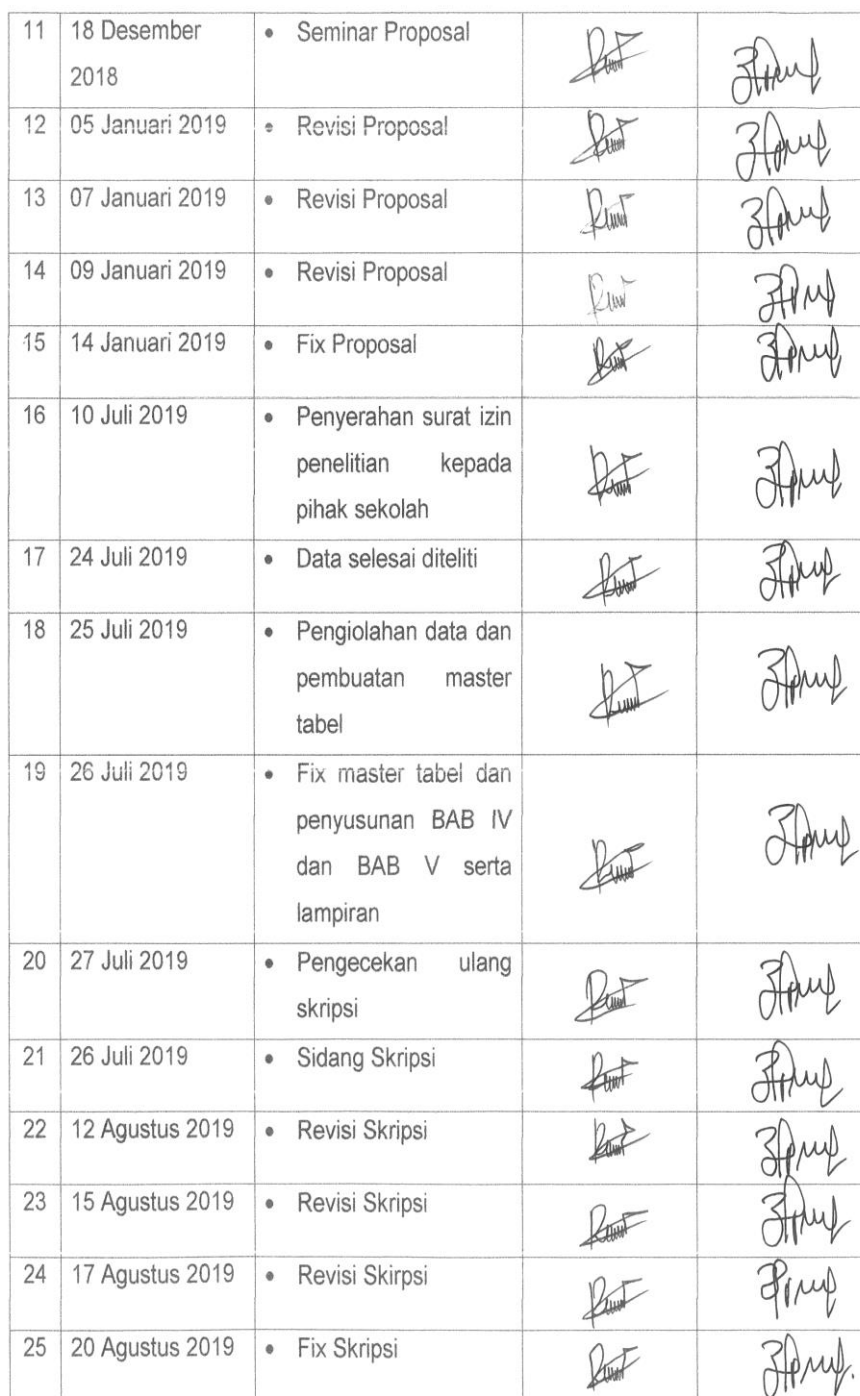 11 18 Desember • Seminar Proposal
2018
12 05 Januari 2019 • Revisi Proposal
13 07 Januari 2019 • Revisi Proposal
14 09 Januari 2019 • Revisi Proposal
15 14 Januari 2019 • Fix Proposal
16 10 Juli 2019 • Penyerahan surat izin
penelitian kepada
pihak sekolah
17 24 Juli 2019 • Data selesai diteliti
18 25 Juli 2019 • Pengiolahan data dan
pembuatan master
tabel
19 26 Juli 2019 • Fix master tabel dan
penyusunan BAB IV
dan BAB V serta
lampiran
20 27 Juli 2019 • Pengecekan ulang
skripsi
21 26 Juli 2019 • Sidang Skripsi
22 12 Agustus 2019 • Revisi Skripsi
23 15 Agustus 2019 • Revisi Skripsi
24 17 Agustus 2019 • Revisi Skirpsi
25 20 Agustus 2019 • Fix Skripsi